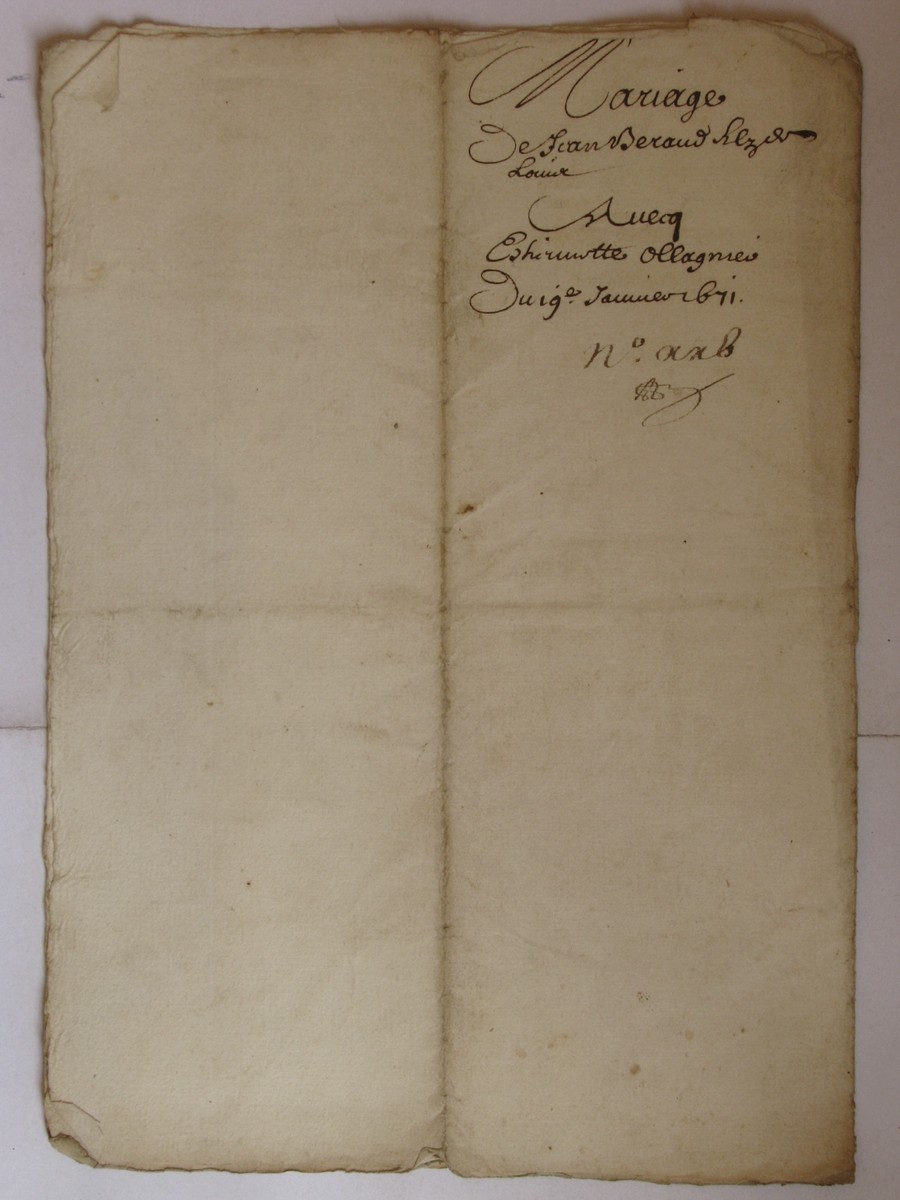 Mariage
De Jean Beraud filz de
Louis
Avecq
Estienette Ollagnier
Du 19e Janvier 1671.
No.